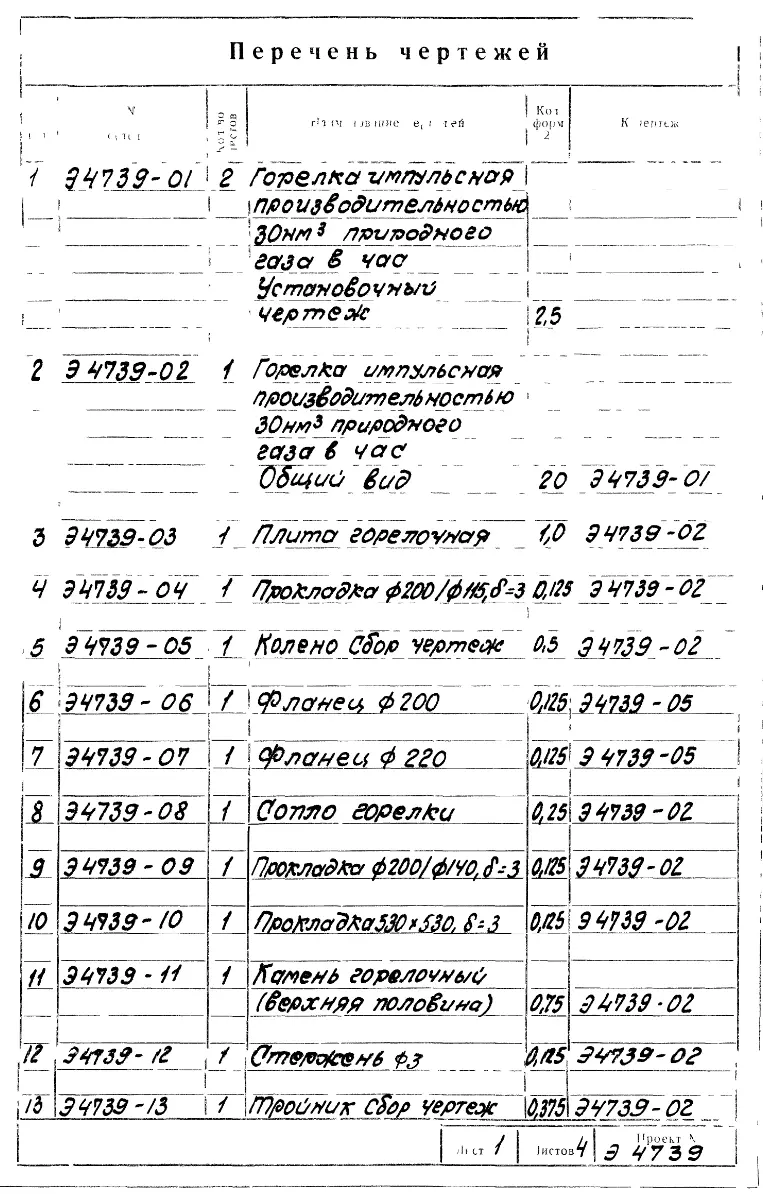 Перечень чертежей
N Кол-во листов Кол форм 2 К
1 Э4739-01 2 Горелка импульсная
производительностью
30нм³ природного
газа в час
Установочный
чертеж 2,5
2 Э4739-02 1 Горелка импульсная
производительностью
30нм³ природного
газа в час
Общий вид 20 Э4739-01
3 Э4739-03 1 Плита горелочная 1,0 Э4739-02
4 Э4739-04 1 Прокладка ф200/ф115, δ=3 0,125 Э4739-02
5 Э4739-05 1 Колено Сбор чертеж 0,5 Э4739-02
6 Э4739-06 1 Фланец ф200 0,125 Э4739-05
7 Э4739-07 1 Фланец ф220 0,125 Э4739-05
8 Э4739-08 1 Сопло горелки 0,25 Э4739-02
9 Э4739-09 1 Прокладка ф200/ф140, δ=3 0,125 Э4739-02
10 Э4739-10 1 Прокладка 530×530, δ=3 0,125 Э4739-02
11 Э4739-11 1 Камень горелочный
(верхняя половина) 0,75 Э4739-02
12 Э4739-12 1 Стержень ф3 0,125 Э4739-02
13 Э4739-13 1 Тройник сбор чертеж 0,375 Э4739-02
Лист 1 Листов 4 Проект N
Э 4739